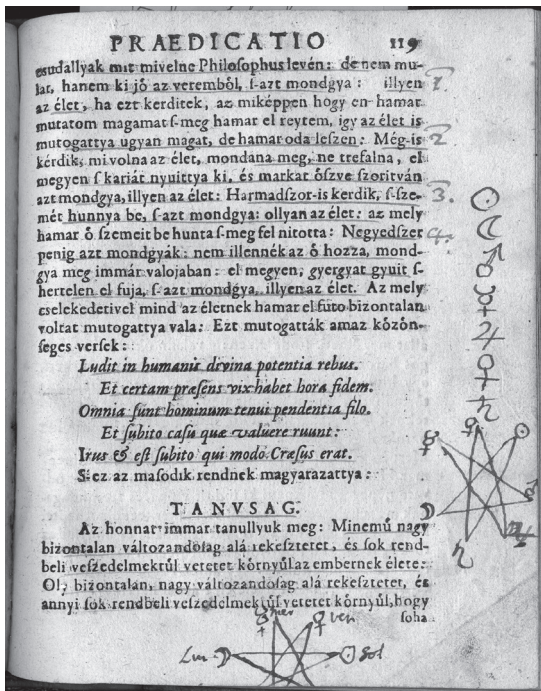 PRAEDICATIO 119
csudallyak mit mivelne Philosophus levén: de nem mu-
lat, hanem ki jó az veremból, ſ-azt mondgya: illyen 1.
az élet, ha ezt kerditek, az miképpen hogy en hamar
mutatom magamat ſ-meg hamar el reytem, igy az élet is
mutogattya ugyan magat, de hamar oda leſzen: Még-is 2
kérdik, mi volna az élet, mondana meg, ne trefalna, el
megyen ſ kariát nyuittya ki, és markat óſzve ſzoritván
azt mondgya, illyen az élet: Harmadſzor-is kerdik, ſ-ſze- 3.
mét hunnya be, ſ-azt mondgya: ollyan az élet: az mely
hamar ó ſzemeit be hunta ſ-meg fel nitotta: Negyedſzer 4.
penig azt mondgyák: nem illennék az ó hozza, mond-
gya meg immár valojaban: el megyen, gyergyat gyuit ſ-
hertelen el fuja, ſ-azt mondgya, illyen az élet. Az mely
cselekedetivel mind az életnek hamar el futo bizontalan
voltat mutogattya vala: Ezt mutogatták amaz kózón-
séges verſek:
Ludit in humanis divina potentia rebus.
Et certam præſens vix habet hora fidem.
Omnia ſunt hominum tenui pendentia filo.
Et ſubito caſu quæ valuere ruunt:
Irus & eſt ſubito qui modò Cræſus erat.
S-ez az maſodik rendnek magyarazattya:
☉
☾
♂
☿
♃
♀
♄
TANVSAG.
Az honnat immar tanullyuk meg: Minemű nagy
bizontalan változandoſag alá rekeſztetet, és ſok rend-
beli veſzedelmektúl vetetet kórnyúl az embernek élete:
Ol, bizontalan, nagy változandoſag alá rekeſztetet, és
annyi ſok rendbeli veſzedelmektúl vetetet kórnyúl, hogy
ſoha
☿ mer ♀ ven
Lun ☽ ☉ Sol